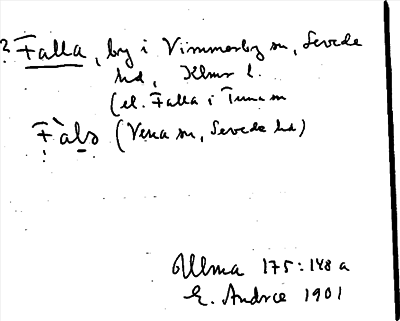 ? Falla, by i Vimmerby sn, Sevede
hd, Klmr l.
(el. Falla i Tuna sn
Fàls (Vena sn, Sevede hd)
Ulma 175:148 a
E. Andrée 1901